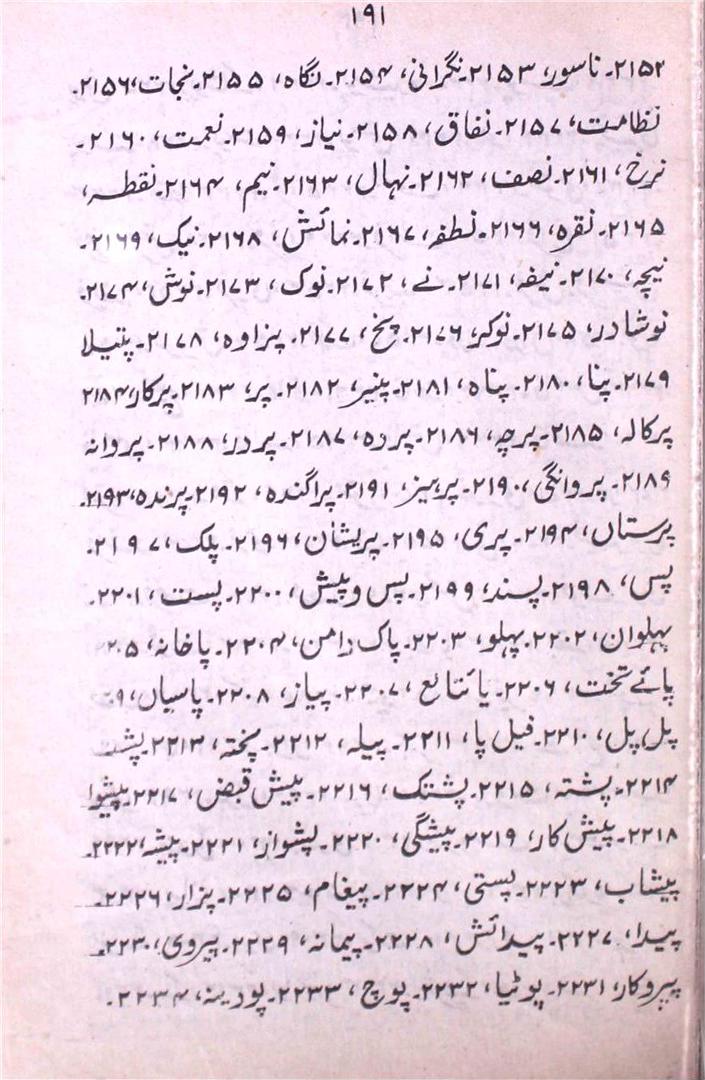 ۱۹۱
۲۱۵۲۔ ناسور، ۲۱۵۳۔ نگرانی، ۲۱۵۴۔ نگاہ، ۲۱۵۵۔ نجات، ۲۱۵۶۔
نظامت، ۲۱۵۷۔ نفاق، ۲۱۵۸۔ نیاز، ۲۱۵۹۔ نعمت، ۲۱۶۰۔
نرخ، ۲۱۶۱۔ نصف، ۲۱۶۲۔ نہال، ۲۱۶۳۔ نیم، ۲۱۶۴۔ نقطہ،
۲۱۶۵۔ نقرہ، ۲۱۶۶۔ نطفہ، ۲۱۶۷۔ نمائش، ۲۱۶۸۔ نیک، ۲۱۶۹۔
نیچہ، ۲۱۷۰۔ نیفہ، ۲۱۷۱۔ نے، ۲۱۷۲۔ نوک، ۲۱۷۳۔ نوش، ۲۱۷۴۔
نوشادر، ۲۱۷۵۔ نوکر، ۲۱۷۶۔ پنچ، ۲۱۷۷۔ پزاوہ، ۲۱۷۸۔ پتیلا
۲۱۷۹۔ پنا، ۲۱۸۰۔ پناہ، ۲۱۸۱۔ پنیر، ۲۱۸۲۔ پر، ۲۱۸۳۔ پرکار، ۲۱۸۴
پرکالہ، ۲۱۸۵۔ پرچہ، ۲۱۸۶۔ پردہ، ۲۱۸۷۔ پردر، ۲۱۸۸۔ پروانہ
۲۱۸۹۔ پروانگی، ۲۱۹۰۔ پرہیز، ۲۱۹۱۔ پراگندہ، ۲۱۹۲۔ پرندہ، ۲۱۹۳۔
پرستان، ۲۱۹۴۔ پری، ۲۱۹۵۔ پریشان، ۲۱۹۶۔ پلک، ۲۱۹۷۔
پس، ۲۱۹۸۔ پسند، ۲۱۹۹۔ پس و پیش، ۲۲۰۰۔ پست، ۲۲۰۱۔
پہلوان، ۲۲۰۲۔ پہلو، ۲۲۰۳۔ پاک دامن، ۲۲۰۴۔ پاخانہ، ۲۲۰۵
پائے تخت، ۲۲۰۶۔ ۲۲۰۷۔ پیاز، ۲۲۰۸۔ پاسبان،
پل، پل، ۲۲۱۰۔ فیل پا، ۲۲۱۱۔ پیلہ، ۲۲۱۲۔ پختہ، ۲۲۱۳۔ پشت
۲۲۱۴۔ پشتہ، ۲۲۱۵۔ پشتک، ۲۲۱۶۔ پیش قبض، ۲۲۱۷۔ پیشوا
۲۲۱۸۔ پیش کار، ۲۲۱۹۔ پیشگی، ۲۲۲۰۔ پشواز، ۲۲۲۱۔ پیشہ، ۲۲۲۲۔
پیشاب، ۲۲۲۳۔ پستی، ۲۲۲۴۔ پیغام، ۲۲۲۵۔ پزار، ۲۲۲۶۔
پیدا، ۲۲۲۷۔ پیدائش، ۲۲۲۸۔ پیمانہ، ۲۲۲۹۔ پیروی، ۲۲۳۰۔
پیروکار، ۲۲۳۱۔ پوٹیا، ۲۲۳۲۔ پوچ، ۲۲۳۳۔ پودینہ، ۲۲۳۴۔